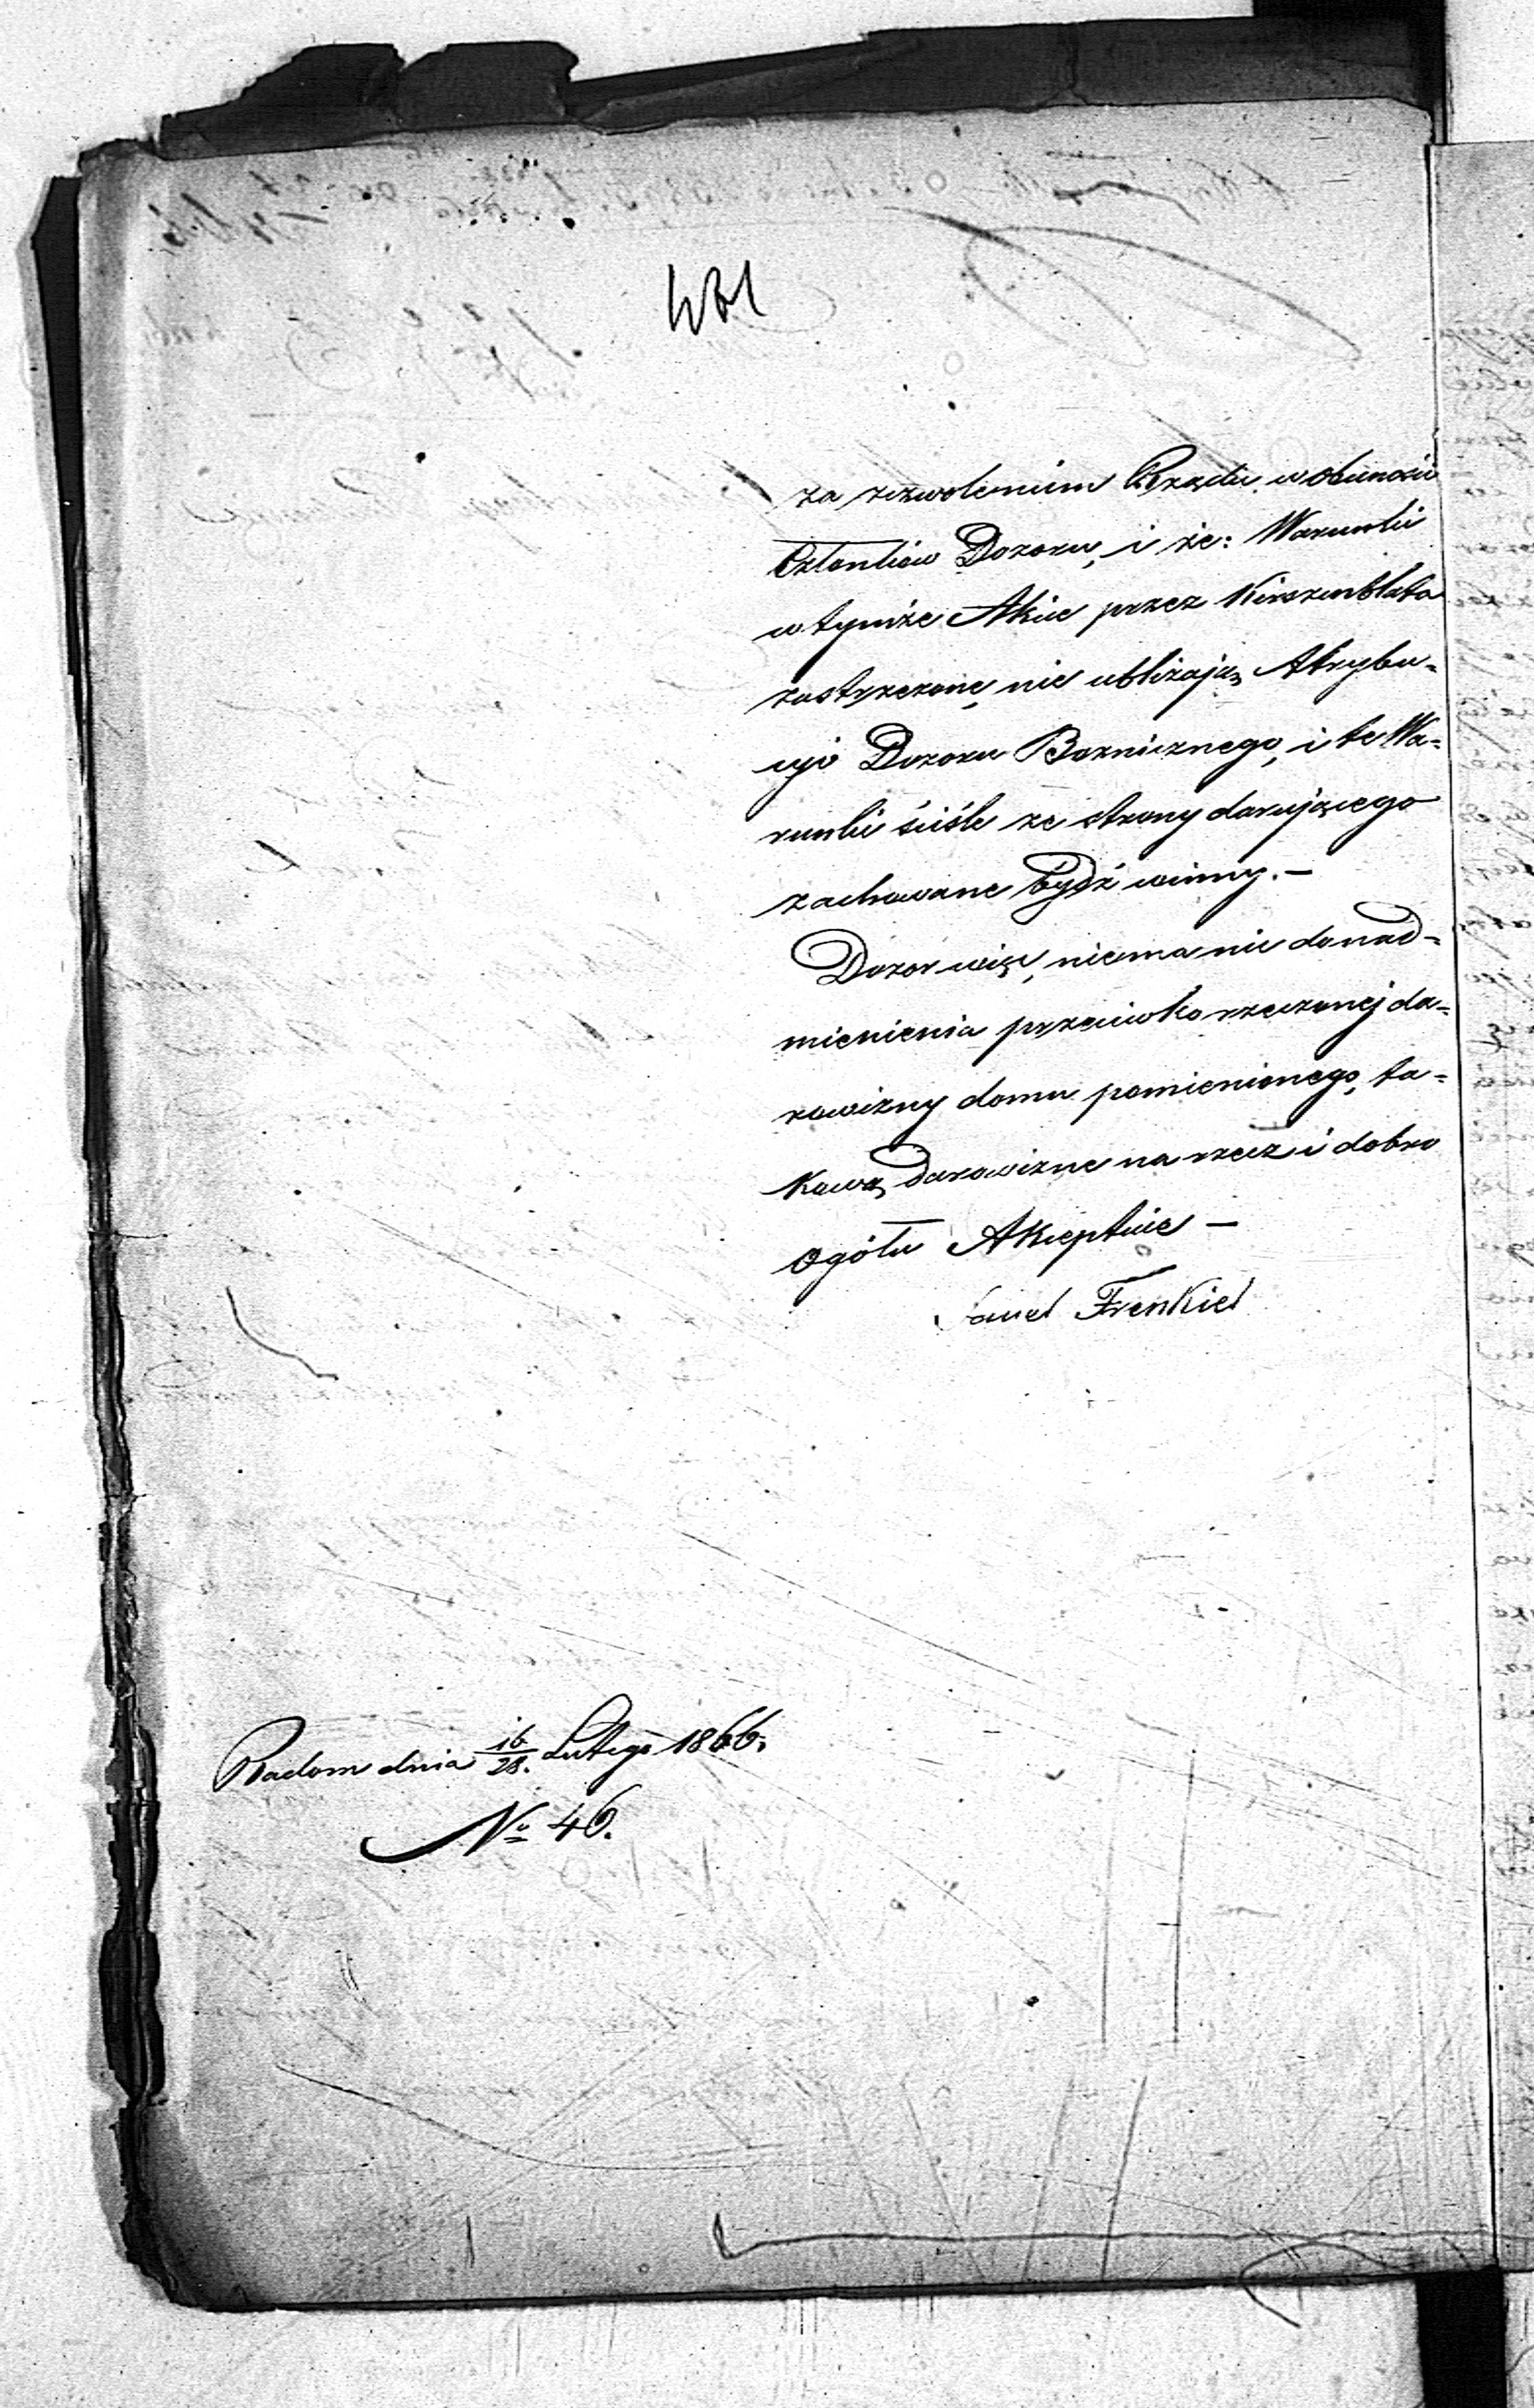 za zezwoleniem Rządu w obecności
Członków Dozoru, i że: Warunki
w tymże Akcie przez Kirszenblata
zastrzeżone, nie ubliżają Atrybu-
cyi Dozoru Boznicznego, i te Wa-
runki ściśle ze strony darującego
zachowane bydź winny. —
Dozor więc, niema nic do nad-
mienienia przeciwko rzeczonej da-
rowizny domu pomienionego, ta-
kową darowizne na rzecz i dobro
Ogółu Akceptuie —
Frenkiel
Radom dnia 16/28. Lutego 1866.
No 46.